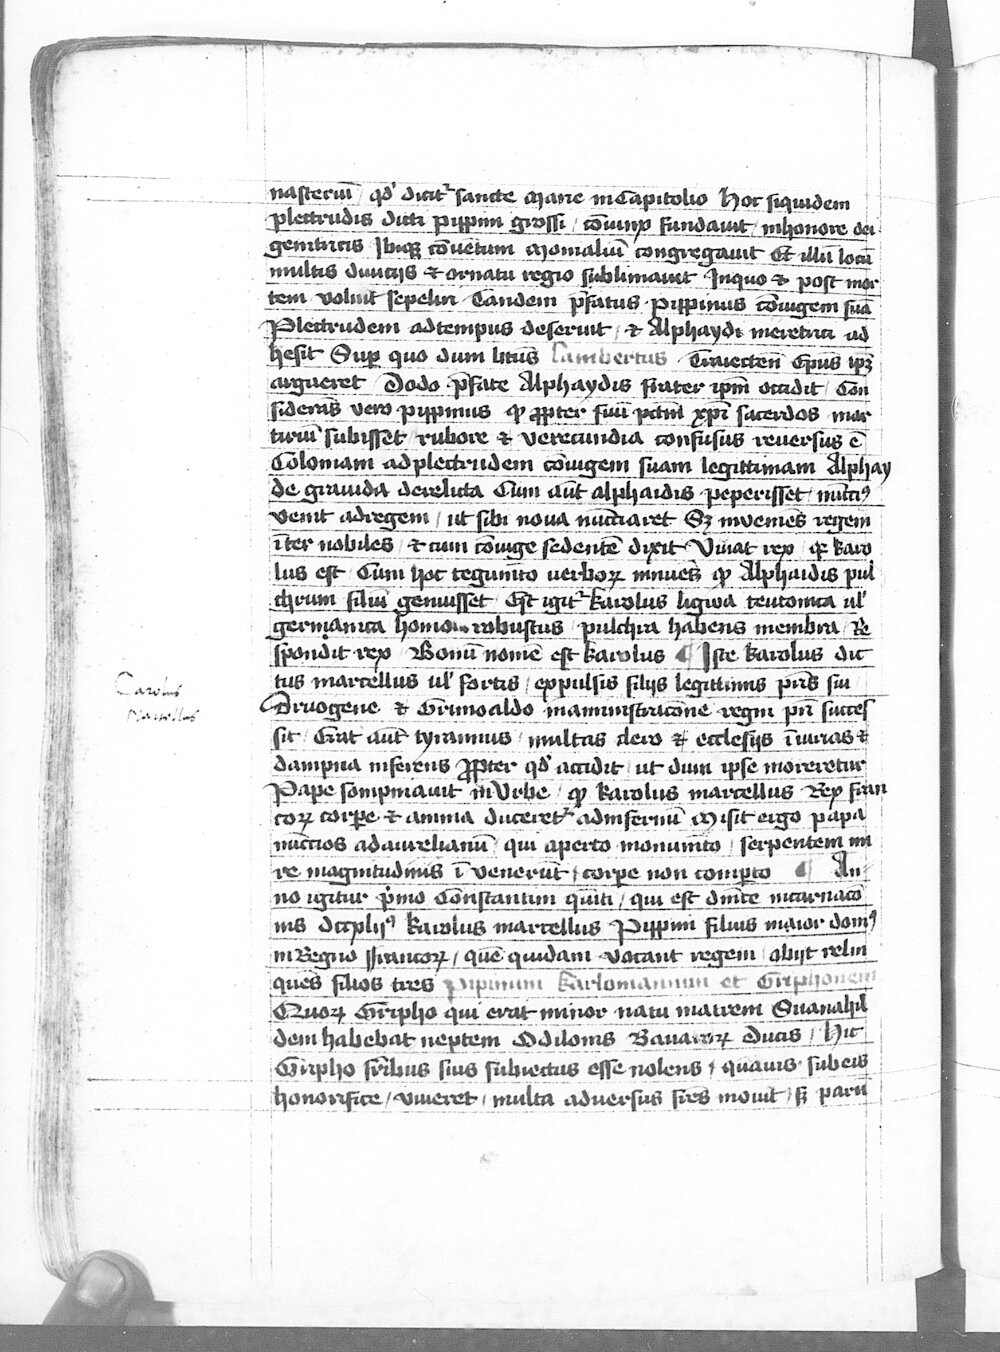 nasteriū / qd' dicit᷑ sancte Marie in Capitolio Hoc siquidem
plectrudis dicti pippini grossi / cōiunx fundauit / in honore dei
genitricis Ibiqꝫ cōuētum Monialiū congregauit Et illū locū
multis diuicijs ⁊ ornatu regio sublimauit In quo ⁊ post mor
tem voluit sepeliri Tandem p̄fatus pippinus cōiugem suā
Plectrudem ad tempus deseruit / ⁊ Alphaydi meretrici ad
hesit Sup quo dum btūs Lambertus Traiecteñ Ep̄us ip̄ꝫ
argueret Dodo p̄fate Alphaydis frater ip̄m occidit / Con
siderās vero pippinus ꝙ ꝓpter suū pctm̄ xp̄i sacerdos mar
tiriū subisset / rubore ⁊ verecundia confusus reuersus ē
Coloniam ad plectrudem cōiugem suam legittimam Alphay
de grauida derelicta Cum aūt alphaidis peperisset / nūcciꝰ
venit ad regem / ut sibi noua nūcciaret Sꝫ inueniēs regem
īter nobiles / ⁊ cum cōiuge sedentē dixit Viuat rex / qꝛ karo
lus est / Cum hoc tegumīto verboꝝ innuēs ꝙ Alphaidis pul
chrum filiū genuisset / Est igit᷑ karolus ligwa teutonica ul'
germanica homo robustus / pulchra habens membra / Re
spondit rex / Bonū nomē est karolus ¶ Iste karolus dic
tus marcellus ul' fortis / expulsis filijs legittimis pr̄is sui
Druogene ⁊ Grimoaldo in aministracōne regni pr̄i succes
sit / Erat aūt tyrannus / multas deo ⁊ ecclesijs īiurias ⁊
dampna inferens ꝓpter qd' accidit / ut dum ipse moreretur
Pape sompniauit in Vrbe / ꝙ karolus marcellus Rex fran
coꝝ corpe ⁊ anima duceret᷑ ad infernū Misit ergo papa
nūccios ad aurelianū / qui aperto monumīto / serpentem mi
re magnitudinis īvenerūt / corpe non comperto ¶ An
no igitur p̄mo Constantini quīti / qui est dn̄ice incarnacō
nis dcc̄xlijꝰ karolus marcellus Pippini filius maior domꝰ
in Regno ffrancoꝝ / quē quidam vocant regem / obijt relin
quēs filios tres pipinum karlomannum et Griphonem
Quoꝝ Gripho qui erat minor natu matrem Suanahil
dem habebat neptem Odilonis Bauaroꝝ Ducis / Hic
Gripho fr̄ibus suis subiectus esse nolens / quāuis sub eis
honorifice / viueret / multa aduersus fr̄es mouit / sꝫ parū
Carolus
Marcellus